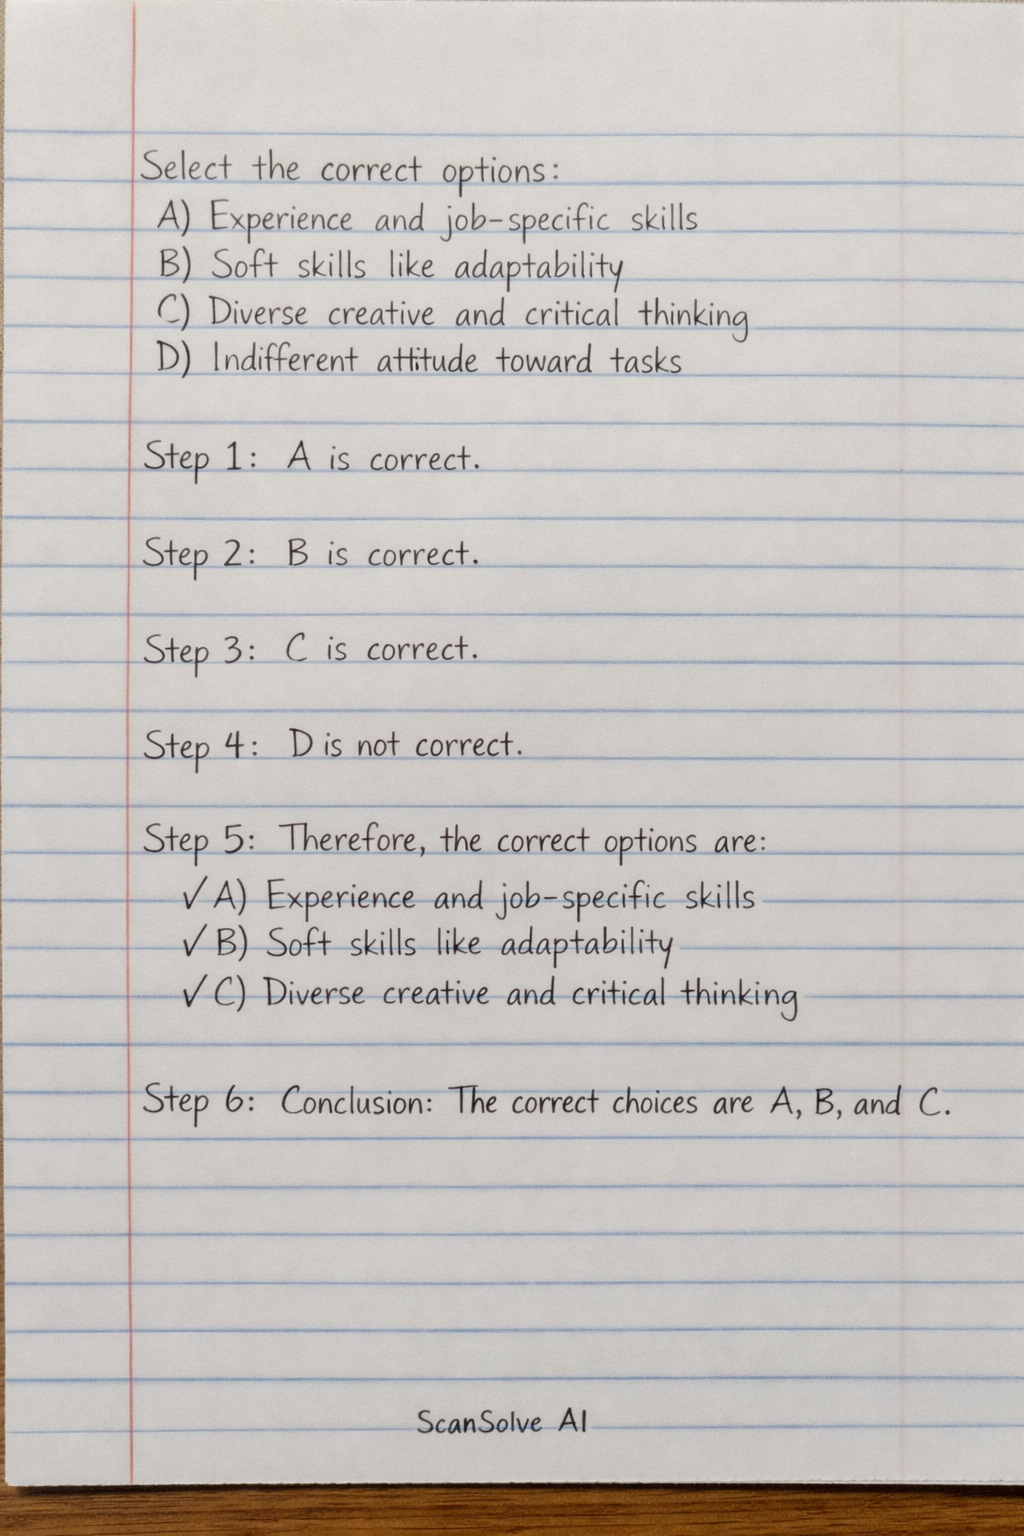 Select the correct options:
A) Experience and job-specific skills
B) Soft skills like adaptability
C) Diverse creative and critical thinking
D) Indifferent attitude toward tasks
Step 1: A is correct.
Step 2: B is correct.
Step 3: C is correct.
Step 4: D is not correct.
Step 5: Therefore, the correct options are:
✓ A) Experience and job-specific skills
✓ B) Soft skills like adaptability
✓ C) Diverse creative and critical thinking
Step 6: Conclusion: The correct choices are A, B, and C.
ScanSolve AI